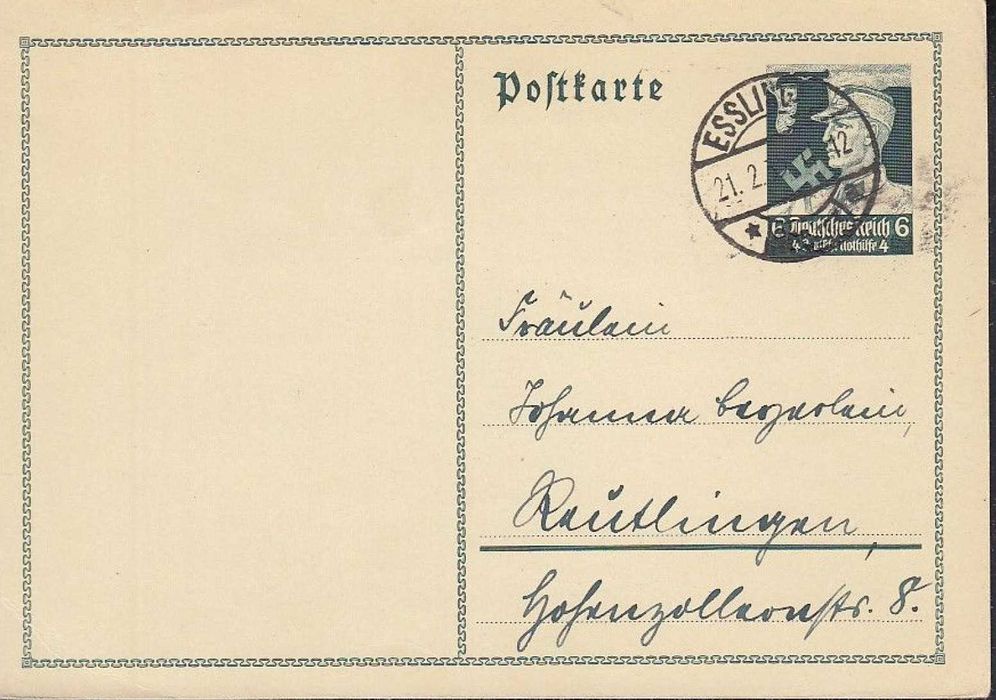 Postkarte
ESSLIN
21. 2.
12
6 Deutsches Reich 6
4 Nothilfe 4
Fräulein
Johanna
Reutlingen,
Hohenzollernstr. 8.